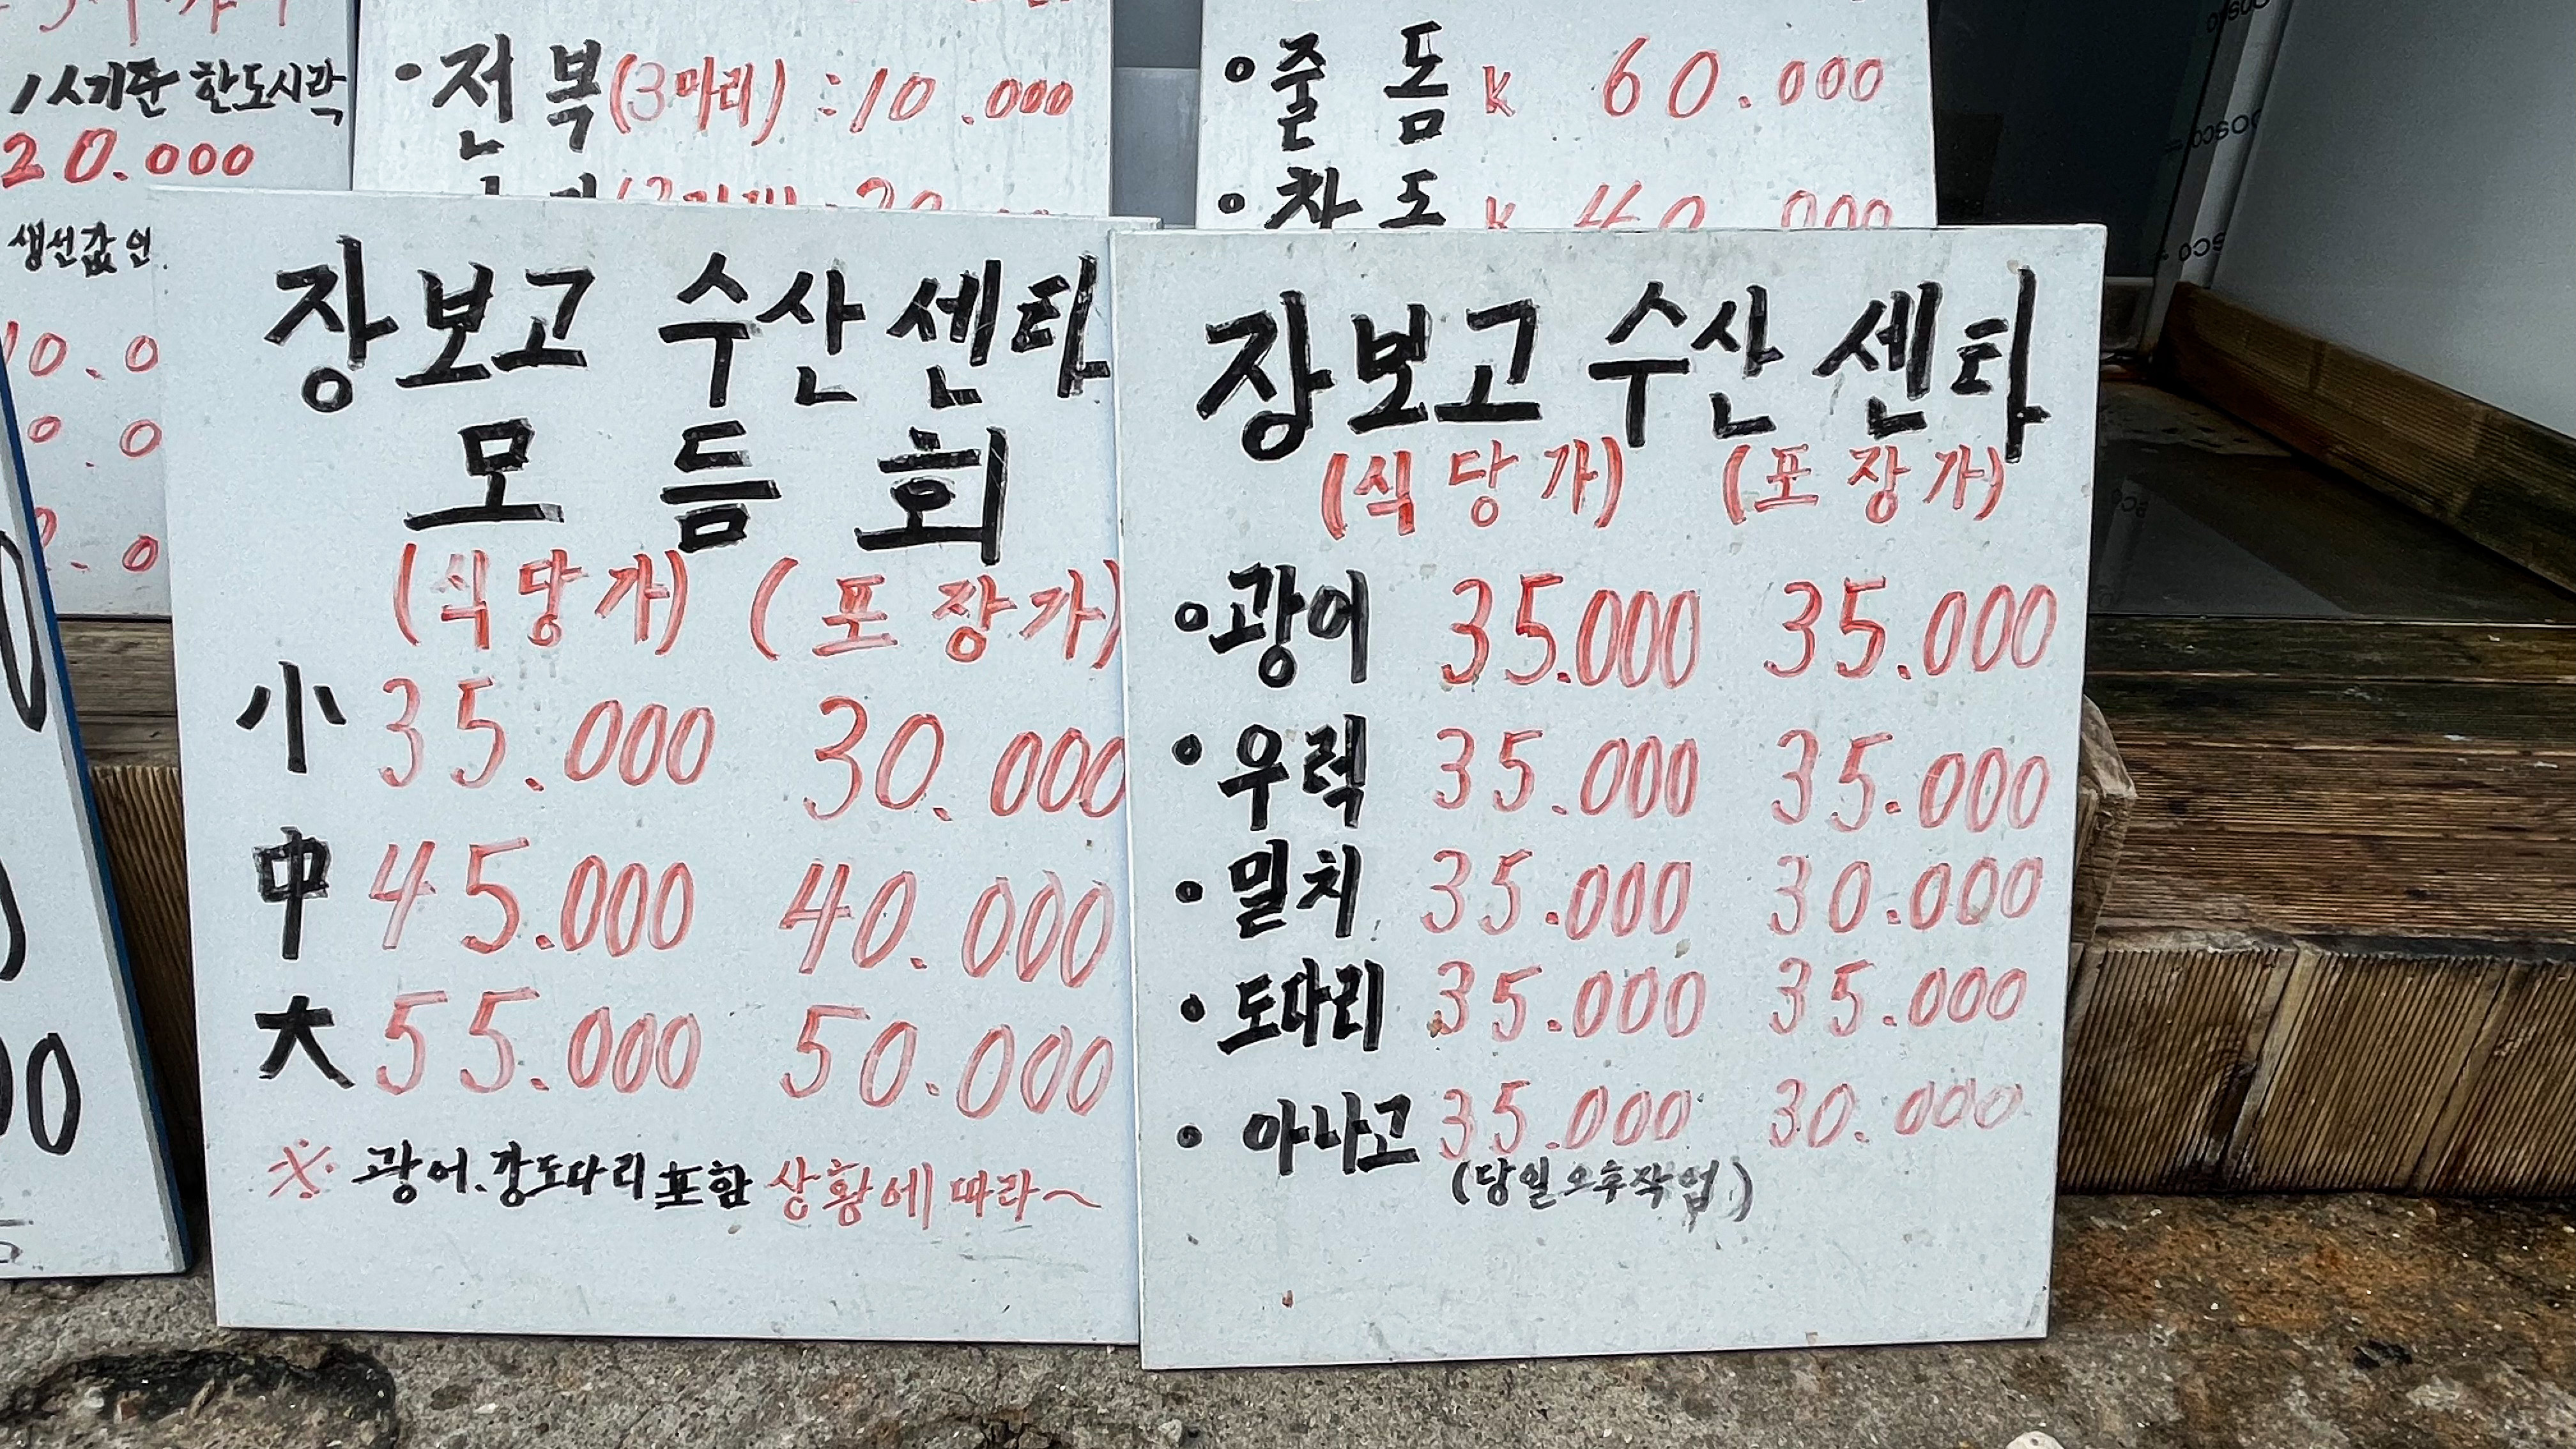 1人기준 한도시락
20.000
생선값 인
· 전복(3마리) : 10.000
· 줄돔 K 60.000
장보고 수산센타
모듬회
(식당가) (포장가)
小 35.000 30.000
中 45.000 40.000
大 55.000 50.000
※ 광어.강도다리포함 상황에 따라~
장보고 수산 센타
(식당가) (포장가)
· 광어 35.000 35.000
· 우럭 35.000 35.000
· 밀치 35.000 30.000
· 도다리 35.000 35.000
· 아나고 35.000 30.000
(당일오후작업)